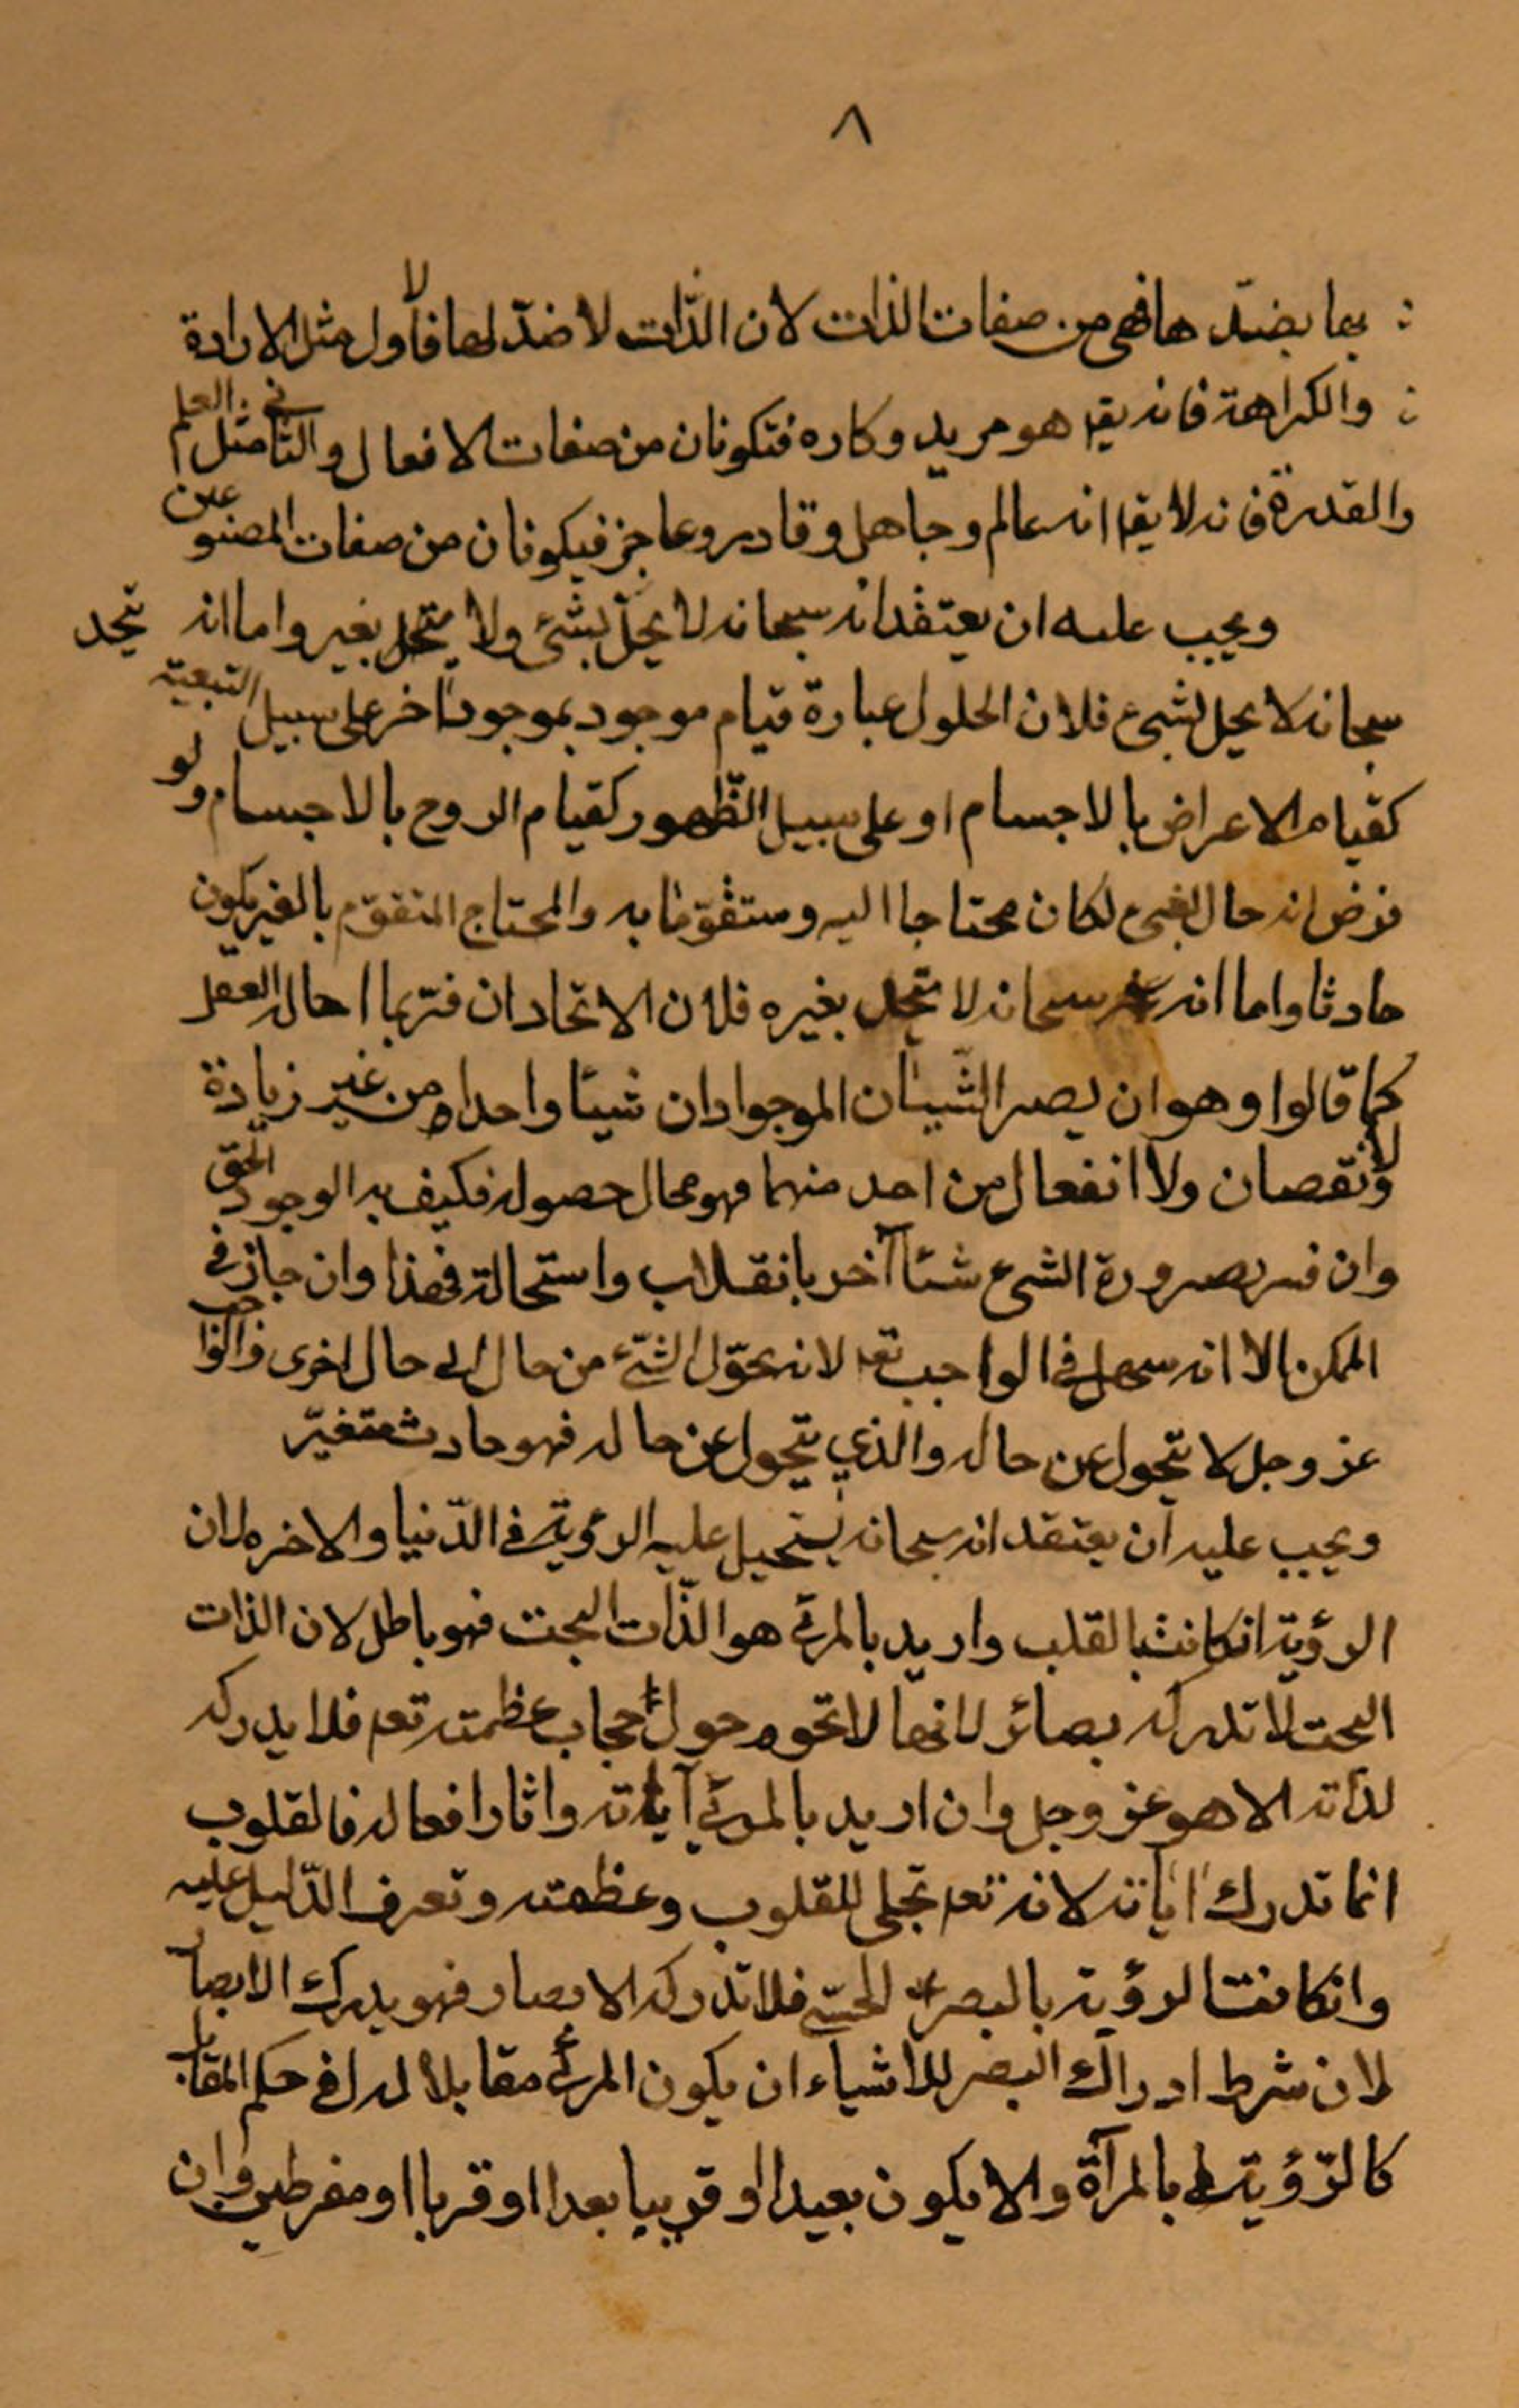 ٨
بما بضدّها فهى من صفات الذات لان الذّات لا ضدّ لها فالأول مثل الارادة
والكراهة فانه يق هو مريد وكاره فتكونان من صفات الافعال والثانى مثل العلم
والقدرة فانه لا يق انه عالم وجاهل وقادر وعاجز فيكونان من صفات المصنوعين
ويجب عليه ان يعتقد انه سبحانه لا يحلّ بشئ ولا يتحد بغير واما انه يتحد
سبحانه لا يحل بشىء فلان الحلول عبارة قيام موجود بموجود اخر على سبيل التبعية
كقيام الاعراض بالاجسام او على سبيل الظّهور كقيام الروح بالاجسام ولو
فرض انه حال بغيره لكان محتاجا اليه ومتقوّما به والمحتاج المتقوّم بالغير يكون
حادثا واما انه سبحانه لا يتحد بغيره فلان الاتحاد ان فسّر بما احاله العقل
كما قالوا وهو ان يصير الشّيئان الموجوادان شيئا واحدا من غير زيادة
ولا نقصان ولا انفعال من احد منهما فهو محال حصوله فكيف به الوجود الحق
وان فسر بصيرورة الشىء شئا آخر بانقلاب واستحالة فهذا وان جاز فى
الممكن الا انه يستحيل فى الواجب تعا لانه تحوّل الشّئ من حال الى حال اخرى والواجب
عز وجل لا يتحول عن حاله والذي يتحول عن حاله فهو حادث متغيّر
ويجب عليه ان يعتقد انه سبحانه يستحيل عليه الرؤية فى الدّنيا والاخره لان
الرؤية انكانت بالقلب واريد بالمرئى هو الذّات البحت فهو باطل لان الذات
البحت لا تدركه بصائر لانها لا تحوم حول حجاب عظمته تعا فلا يدركه
لذاته الا هو عز وجل وان اريد بالمرئي آياته واثار افعاله فالقلوب
انما تدرك اياته لانه تعا تجلى للقلوب وعظمته وتعرف الدّليل عليه
وانكانت الرؤية بالبصر الحسّى فلا تدركه الابصار فهو يدرك الابصار
لان شرط ادراك البصر للاشياء ان يكون المرئى مقابلا له او فى حكم المقابل
كالرّؤية بالمرآة والا يكون بعيدا او قريبا بعدا او قربا او مفرطين وان